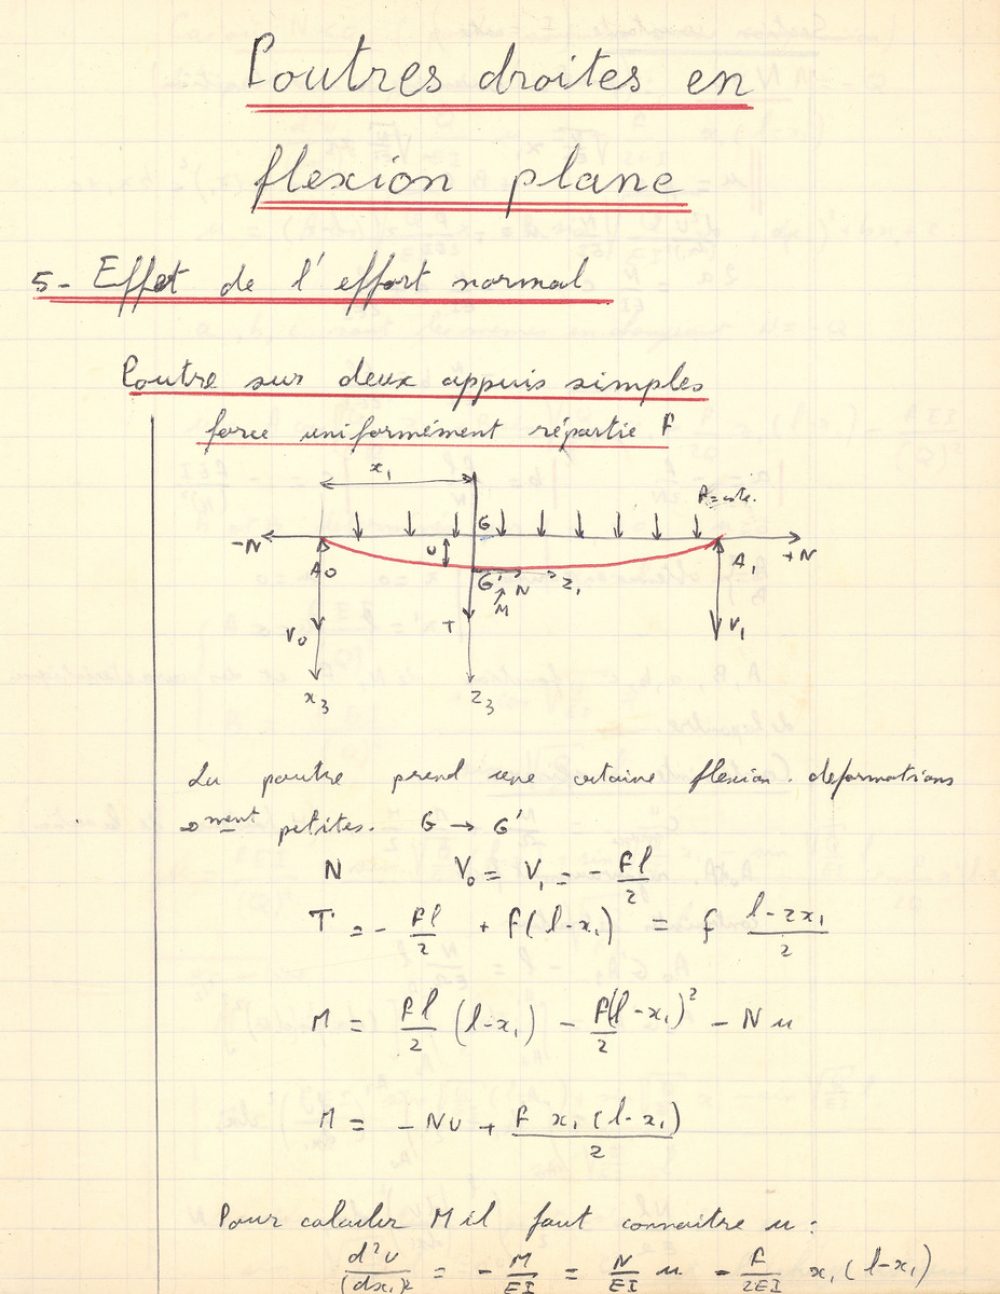 Poutres droites en
flexion plane
5- Effet de l'effort normal
Poutre sur deux appuis simples
force uniformément répartie f
x₁
f=cste.
G
-N
+N
A₀
u
G'
N
z₁
A₁
M
V₀
T
V₁
x₃
z₃
La poutre prend une certaine flexion. déformations
petites. G → G'
N V₀ = V₁ = - fl/2
T = - fl/2 + f(l-x₁) = f (l-2x₁)/2
M = fl/2 (l-x₁) - f(l-x₁)²/2 - N u
M = - Nu + f x₁(l-x₁)/2
Pour calculer M il faut connaitre u :
d²u/(dx₁)² = - M/EI = N/EI u - f/2EI x₁(l-x₁)